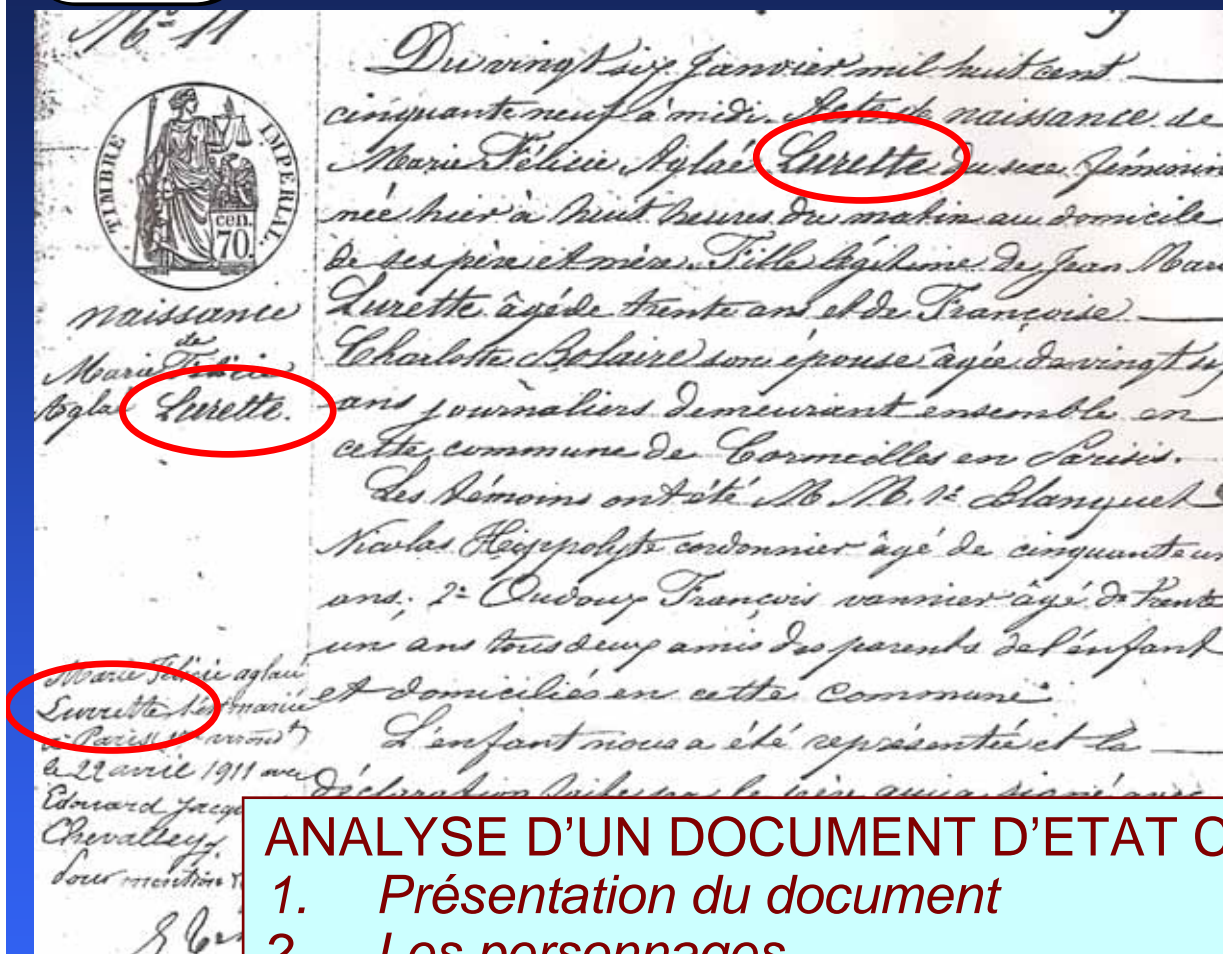 N° 11
TIMBRE IMPERIAL.
cen.
70
naissance
de
Marie Félicie
Aglaé Lurette.
Marie Félicie aglaé
Lurette s'est mariée
à Paris arrondt
le 22 avril 1911 avec
Edouard Jacq
Chevalley
Pour mention
Du vingt six Janvier mil huit cent
cinquante neuf à midi. Acte de naissance de
Marie Félicie Aglaé Lurette du sexe féminin
née hier à huit heures du matin au domicile
de ses père et mère. Fille légitime de Jean Mari
Lurette âgé de trente ans et de Françoise
Charlotte Bolaire son épouse âgée de vingt six
ans journaliers demeurant ensemble en
cette commune de Cormeilles en Parisis.
Les témoins ont été M M. 1° Blanquet
Nicolas Hippolyte cordonnier âgé de cinquante un
ans; 2° Oudoux François vannier âgé de trente
un ans tous deux amis des parents de l'enfant
et domiciliés en cette commune.
L'enfant nous a été représentée et la
déclaration faite par le père qui a signé avec
ANALYSE D'UN DOCUMENT D'ETAT C
1. Présentation du document
2. Les personnages